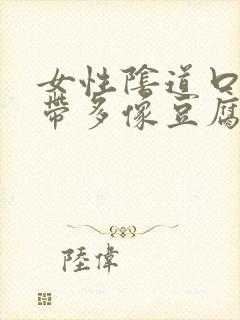 女性陰道口
帶多像豆腐
陸偉